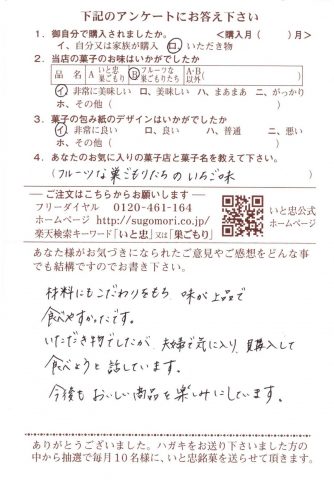 下記のアンケートにお答え下さい
1. 御自分で購入されましたか。 <購入月( )月>
イ、自分又は家族が購入 ロ、いただき物
2. 当店の菓子のお味はいかがでしたか
品 名 A いと忠 巣ごもり B フルーツな 巣ごもりたち A・B 以外( )
イ、非常に美味しい ロ、美味しい ハ、まあまあ ニ、がっかり
ホ、その他( )
3. 菓子の包み紙のデザインはいかがでしたか
イ、非常に良い ロ、良い ハ、普通 ニ、悪い
ホ、その他( )
4. あなたのお気に入りの菓子店と菓子名を教えて下さい。
(フルーツな巣ごもりたちのいちご味 )
ご注文はこちらからお願いします
フリーダイヤル 0120-461-164
ホームページ http://sugomori.co.jp/
楽天検索キーワード「いと忠」又は「巣ごもり」
いと忠公式
ホームページ
あなた様がお気づきになられたご意見やご感想をどんな事
でも結構ですのでお書き下さい。
材料にもこだわりをもち、味が上品で
食べやすかったです。
いただき物でしたが、夫婦で気に入り、購入して
食べようと話しています。
今後もおいしい商品を楽しみにしています。
ありがとうございました。ハガキをお送り下さいました方の
中から抽選で毎月10名様に、いと忠銘菓を送らせて頂きます。